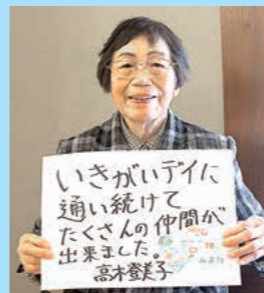 いきがいデイに
通い続けて
たくさんの仲間が
出来ました。
高木登美子